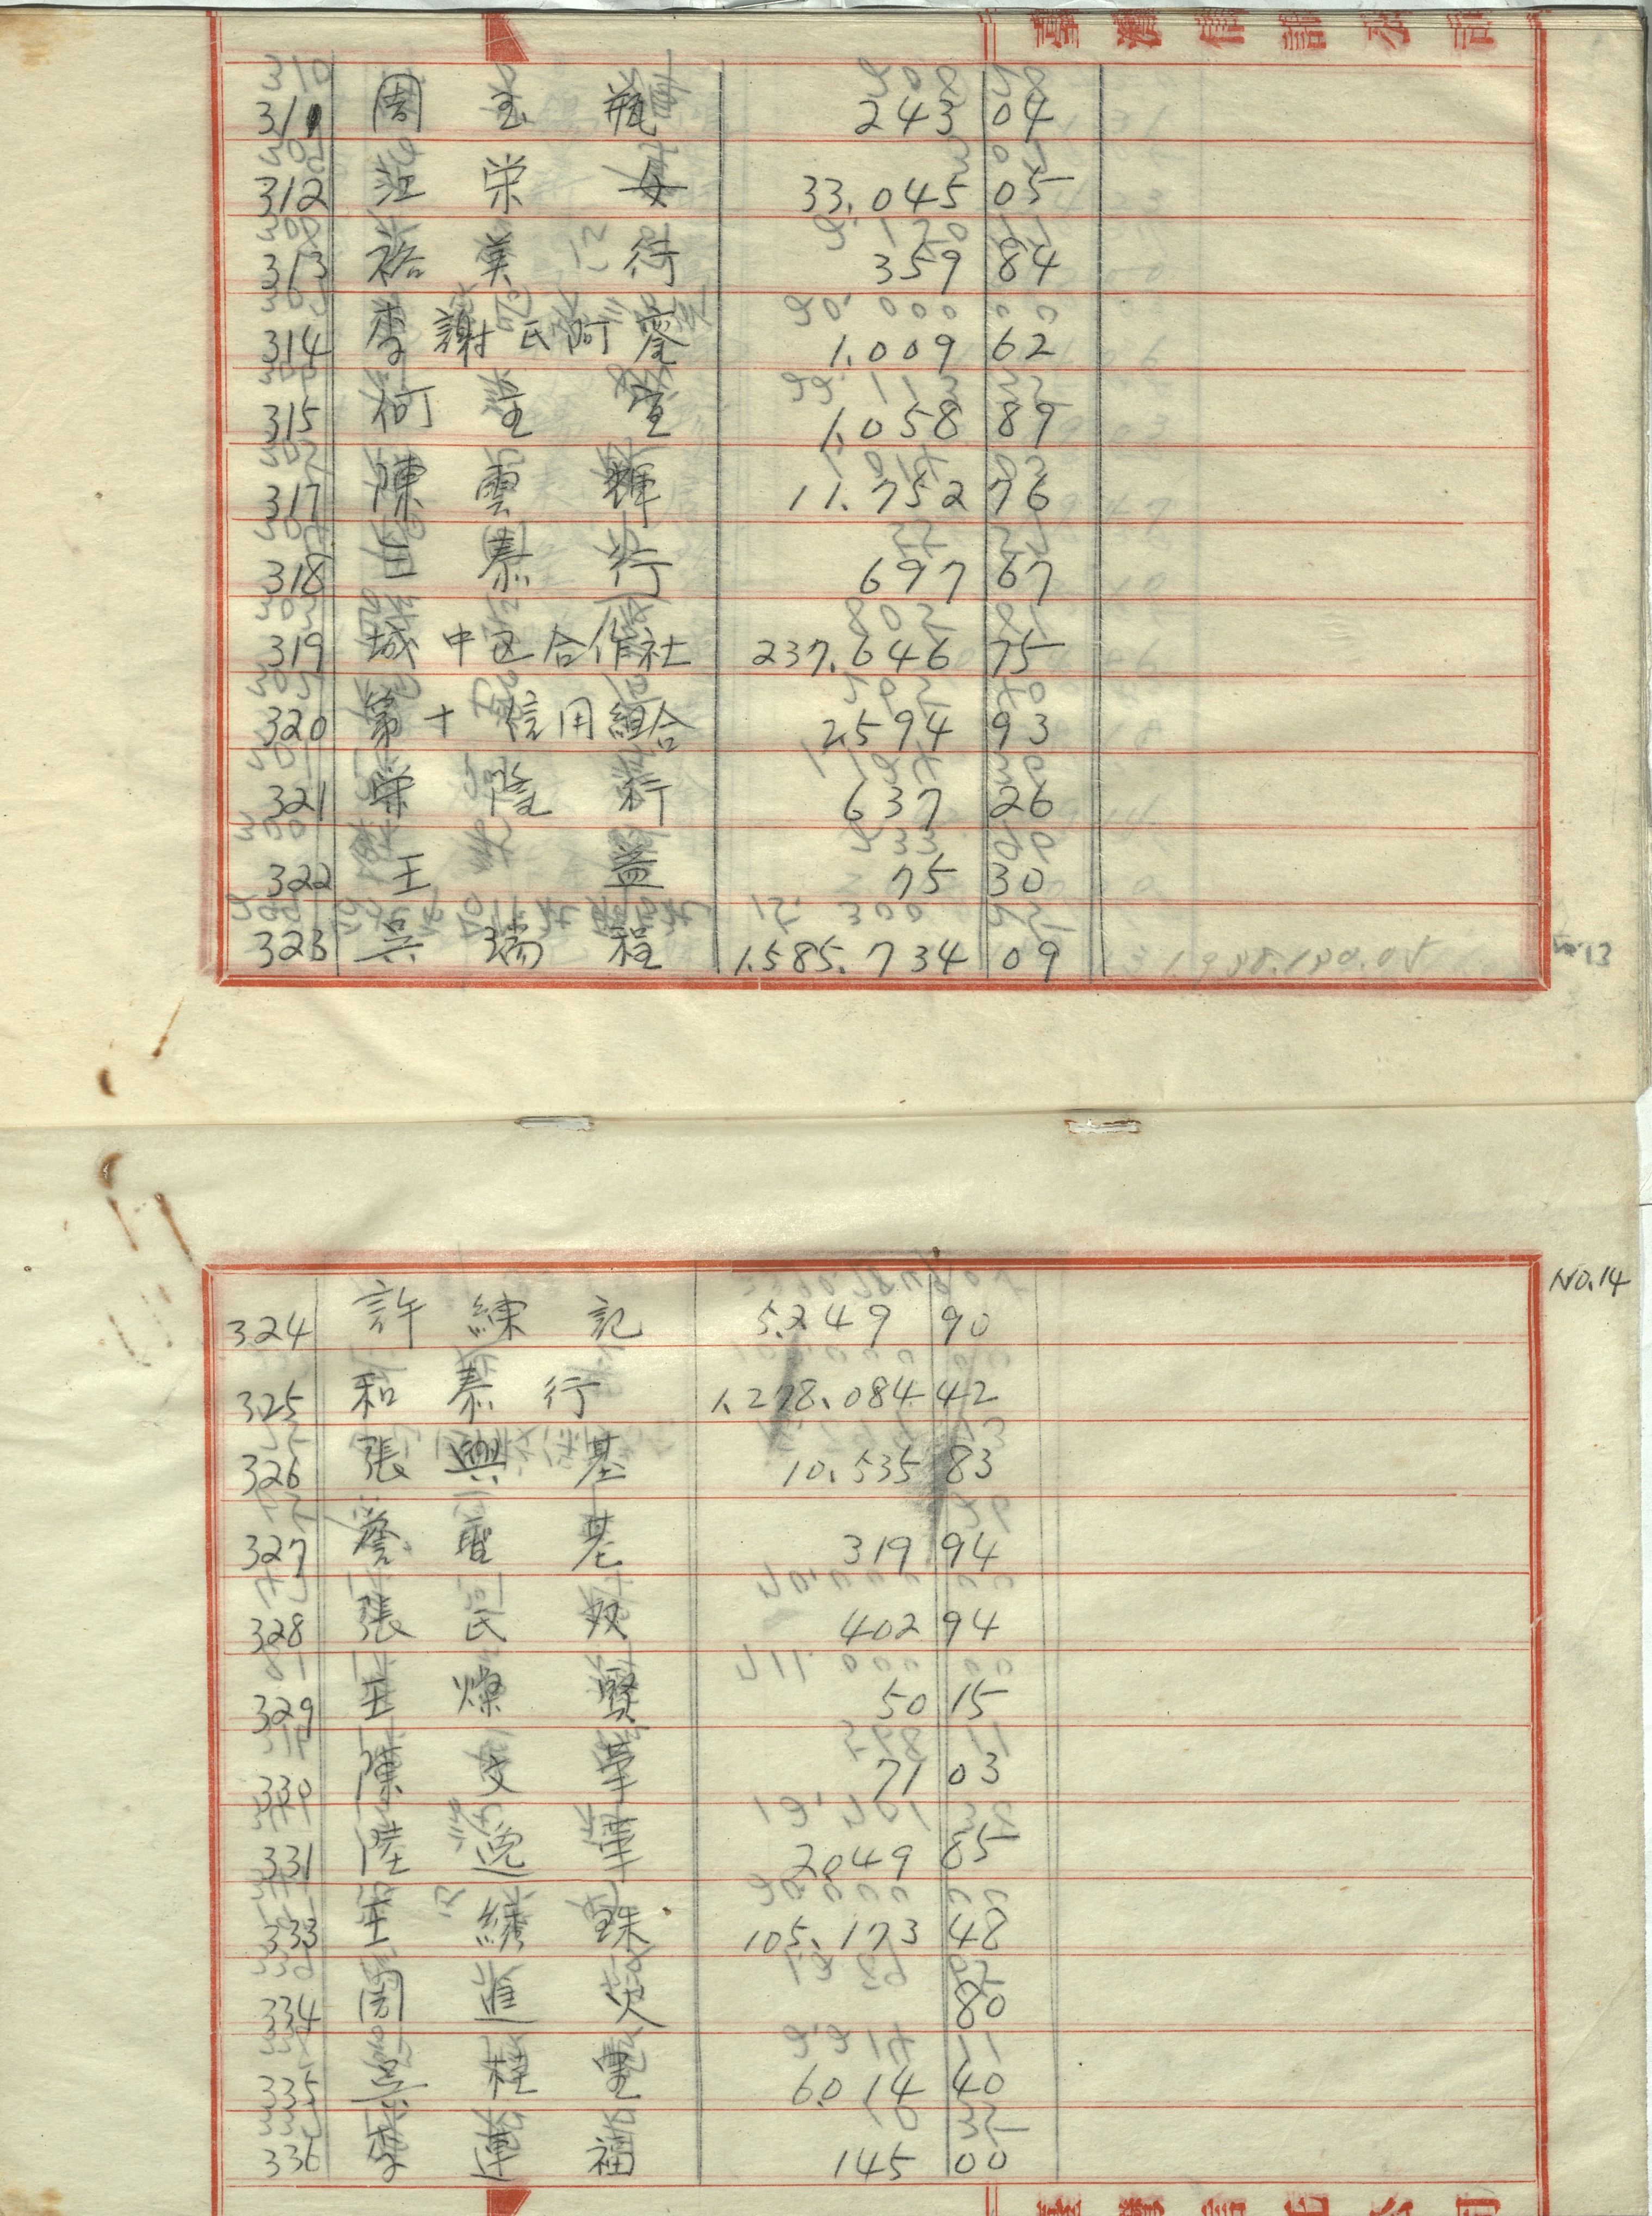 臺灣信託公司
311 周玉瓶 243 04
312 江栄女 33.045 05
313 裕美行 359 84
314 李謝氏阿 1.009 62
315 何 1.058 89
317 陳雲輝 11.752 76
318 王泰行 697 67
319 城中区合作社 237.646 75
320 第十信用組合 2.594 93
321 栄隆行 637 26
322 王益 75 30
323 吳瑞程 1.585.734 09 1.988.180.05
No.13
No.14
324 許練記 5.249 90
325 和泰行 1.278.084 42
326 張興基 10.535 83
327 詹聖基 319 94
328 張氏奴 402 94
329 王燦賢 50 15
330 陳文華 71 03
331 陸逸華 2.049 85
333 王綉珠 105.173 48
334 周進 80
335 吳桂 6.014 40
336 李連福 145 00